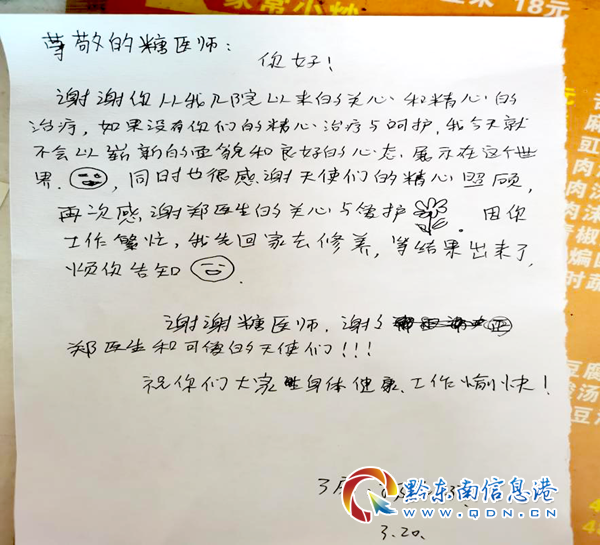 家常小炒
18元
尊敬的糖医师：
你好！
谢谢你从我入院以来的关心和精心的
治疗，如果没有你们的精心治疗与呵护，我今天就
不会以崭新的面貌和良好的心态展示在这个世
界。，同时也很感谢天使们的精心照顾，
再次感谢郑医生的关心与爱护。因你
工作繁忙，我先回家去修养，等结果出来了
烦你告知。
谢谢糖医师，谢
郑医生和可爱的天使们！！！
祝你们大家身体健康、工作愉快！
3床
3.20.
黔东南信息港
WWW.QDN.CN
豆腐
酸汤
豆